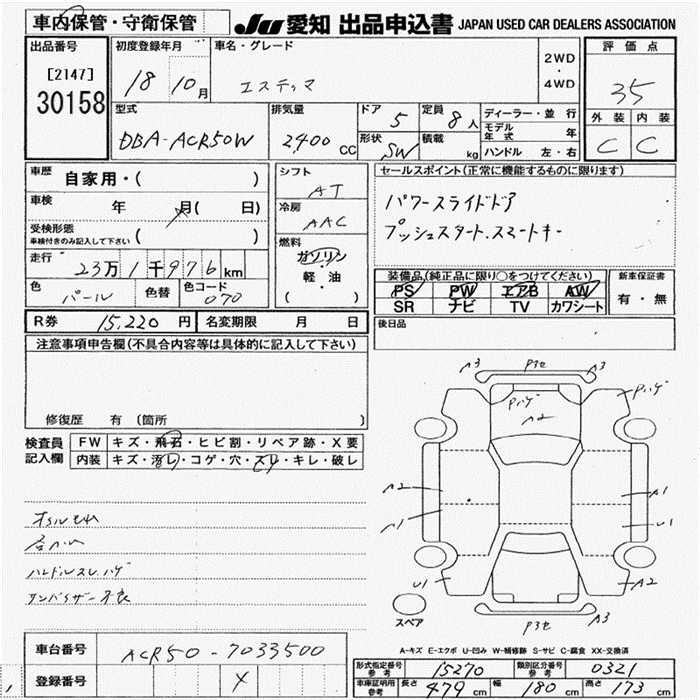 車内保管・守衛保管
JU 愛知 出品申込書 JAPAN USED CAR DEALERS ASSOCIATION
出品番号
[2147]
30158
初度登録年月
18 10月
車名・グレード
エスティマ
2WD
・
4WD
評価点
3.5
外装 内装
C C
型式
DBA-ACR50W
排気量
2400 CC
ドア 5
定員 8人
形状 SW
積載 kg
ディーラー・並行
モデル年式 年
ハンドル 左・右
車歴 自家用・( )
車検 年 月(日)
受検形態
車検付きのみ記入して下さい ( )
走行 23万1千976km
色 パール 色替 色コード 070
シフト
AT
冷房
AAC
燃料
ガソリン
軽・油
( )
セールスポイント(正常に機能するものに限ります)
パワースライドドア
プッシュスタート.スマートキー
装備品(純正品に限り○をつけてください)
PS PW エアB AW
SR ナビ TV カワシート
新車保証書
有・無
R券 15,220円 名変期限 月 日
後日品
注意事項申告欄(不具合内容等は具体的に記入して下さい)
修復歴 有 (箇所 )
検査員記入欄
FW キズ・飛石・ヒビ割・リペア跡・X要
内装 キズ・汚レ・コゲ・穴・スレ・キレ・破レ
ハンドルスレ.ハゲ
サンバイザー不良
A3 P3セ A3
Pハゲ Pハゲ
A2
A2 A1
A1 U1
U1 A2
P3セ A3
スペア
A-キズ E-エクボ U-凹み W-補修跡 S-サビ C-腐食 XX-交換済
車台番号 ACR50-7033500
登録番号 X
形式指定番号 参考 15270 類別区分番号 参考 0321
車庫証明用 参考 長さ 479cm 幅 180cm 高さ 173cm